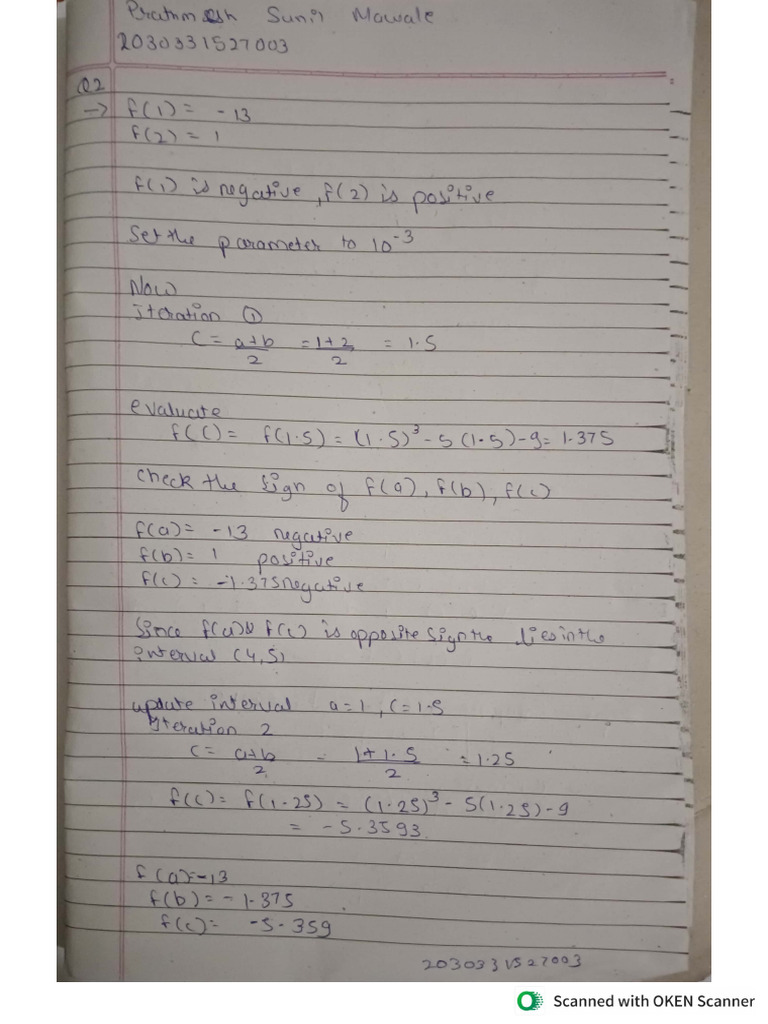 Prathmesh Sunil Mawale
2030331527003
Q2
→ f(1) = -13
f(2) = 1
f(1) is negative, f(2) is positive
Set the parameter to 10⁻³
Now
iteration ①
C = a+b/2 = 1+2/2 = 1.5
evaluate
f(c) = f(1.5) = (1.5)³ - 5(1.5) - 9 = 1.375
check the sign of f(a), f(b), f(c)
f(a) = -13 negative
f(b) = 1 positive
f(c) = -1.375 negative
Since f(a) & f(c) is opposite sign the lies in the
interval (4,5)
update interval a=1, c=1.5
Iteration 2
C = a+b/2 = 1+1.5/2 = 1.25
f(c) = f(1.25) = (1.25)³ - 5(1.25) - 9
= -5.3593
f(a) = -13
f(b) = -1.375
f(c) = -5.359
2030331527003
Scanned with OKEN Scanner